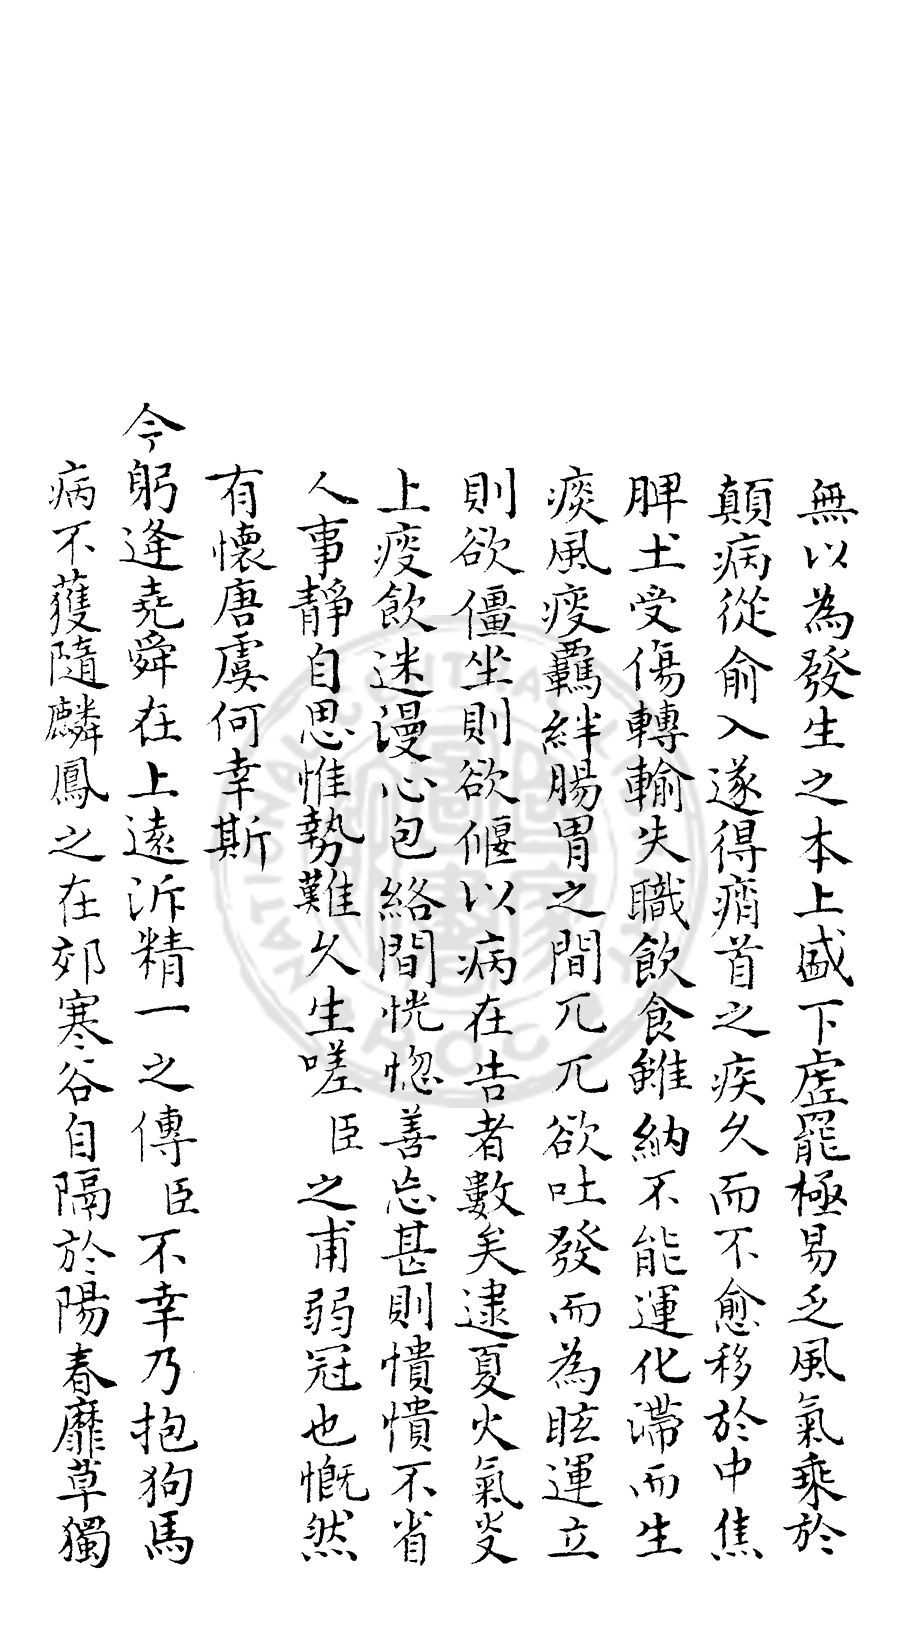 無以為發生之本上盛下虛罷極易乏風氣乘於
顛病從俞入遂得痟首之疾久而不愈移於中焦
脾土受傷轉輸失職飲食雖納不能運化滯而生
痰風痰羈絆腸胃之間兀兀欲吐發而為眩運立
則欲僵坐則欲偃以病在告者數矣逮夏火氣炎
上痰飲迷漫心包絡間恍惚善忘甚則憒憒不省
人事靜自思惟勢難久生嗟臣之甫弱冠也慨然
有懷唐虞何幸斯
今躬逢堯舜在上遠泝精一之傳臣不幸乃抱狗馬
病不獲隨麟鳳之在郊寒谷自隔於陽春靡草獨